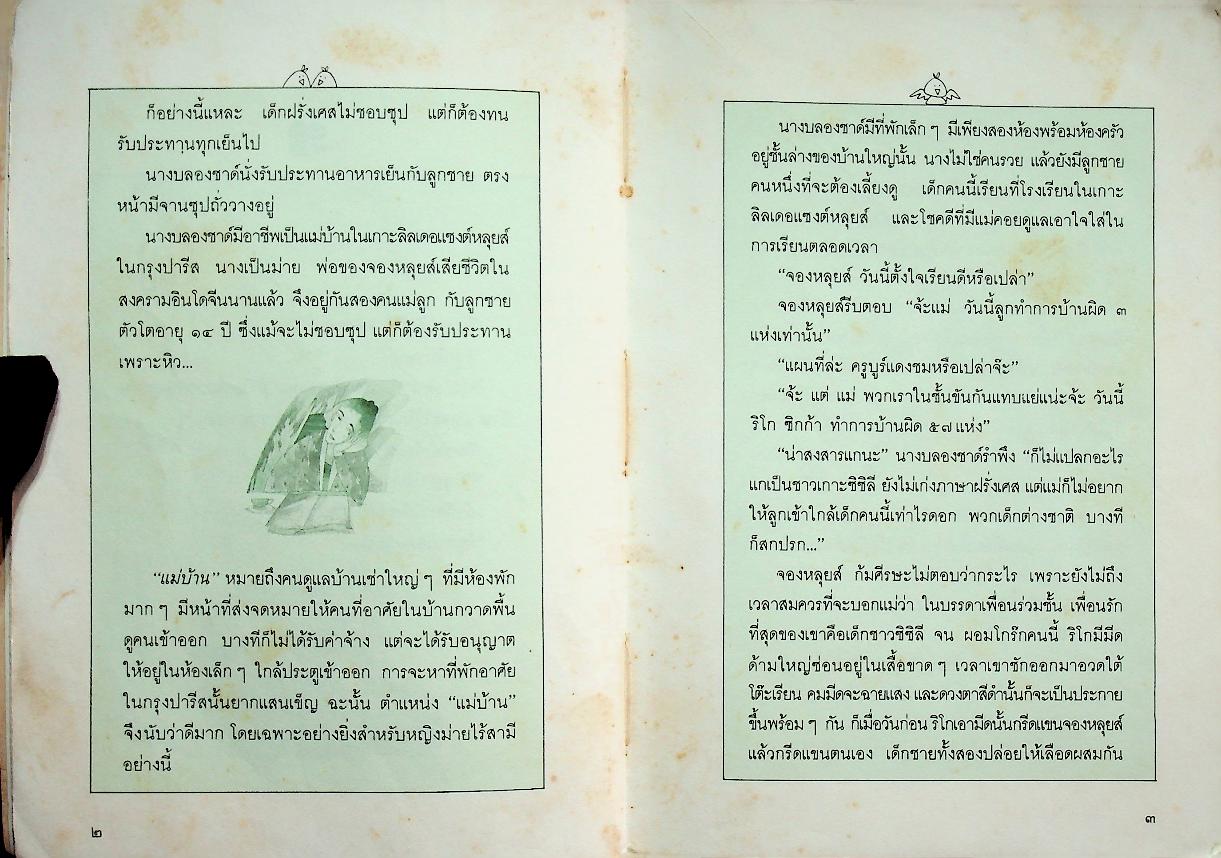 ก็อย่างนี้แหละ เด็กฝรั่งเศสไม่ชอบซุป แต่ก็ต้องทน
รับประทานทุกเย็นไป
นางบลองชาด์นั่งรับประทานอาหารเย็นกับลูกชาย ตรง
หน้ามีจานซุปถั่ววางอยู่
นางบลองชาด์มีอาชีพเป็นแม่บ้านในเกาะลิลเดอแซงต์หลุยส์
ในกรุงปารีส นางเป็นม่าย พ่อของจองหลุยส์เสียชีวิตใน
สงครามอินโดจีนนานแล้ว จึงอยู่กันสองคนแม่ลูก กับลูกชาย
ตัวโตอายุ ๑๔ ปี ซึ่งแม้จะไม่ชอบซุป แต่ก็ต้องรับประทาน
เพราะหิว...
“แม่บ้าน” หมายถึงคนดูแลบ้านเช่าใหญ่ ๆ ที่มีห้องพัก
มาก ๆ มีหน้าที่ส่งจดหมายให้คนที่อาศัยในบ้านกวาดพื้น
ดูคนเข้าออก บางทีก็ไม่ได้รับค่าจ้าง แต่จะได้รับอนุญาต
ให้อยู่ในห้องเล็ก ๆ ใกล้ประตูเข้าออก การจะหาที่พักอาศัย
ในกรุงปารีสนั้นยากแสนเข็ญ ฉะนั้น ตำแหน่ง “แม่บ้าน”
จึงนับว่าดีมาก โดยเฉพาะอย่างยิ่งสำหรับหญิงม่ายไร้สามี
อย่างนี้
๒
นางบลองชาด์มีที่พักเล็ก ๆ มีเพียงสองห้องพร้อมห้องครัว
อยู่ชั้นล่างของบ้านใหญ่นั้น นางไม่ใช่คนรวย แล้วยังมีลูกชาย
คนหนึ่งที่จะต้องเลี้ยงดู เด็กคนนี้เรียนที่โรงเรียนในเกาะ
ลิลเดอแซงต์หลุยส์ และโชคดีที่มีแม่คอยดูแลเอาใจใส่ใน
การเรียนตลอดเวลา
“จองหลุยส์ วันนี้ตั้งใจเรียนดีหรือเปล่า”
จองหลุยส์รีบตอบ “จ้ะแม่ วันนี้ลูกทำการบ้านผิด ๓
แห่งเท่านั้น”
“แผนที่ล่ะ ครูบูร์แดงชมหรือเปล่าจ๊ะ”
“จ้ะ แต่ แม่ พวกเราในชั้นขันกันแทบแย่แน่ะจ้ะ วันนี้
ริโก ซิกก้า ทำการบ้านผิด ๕๗ แห่ง”
“น่าสงสารแกนะ” นางบลองชาด์รำพึง “ก็ไม่แปลกอะไร
แกเป็นชาวเกาะซิซิลี ยังไม่เก่งภาษาฝรั่งเศส แต่แม่ก็ไม่อยาก
ให้ลูกเข้าใกล้เด็กคนนี้เท่าไรดอก พวกเด็กต่างชาติ บางที
ก็สกปรก...”
จองหลุยส์ ก้มศีรษะไม่ตอบว่ากระไร เพราะยังไม่ถึง
เวลาสมควรที่จะบอกแม่ว่า ในบรรดาเพื่อนร่วมชั้น เพื่อนรัก
ที่สุดของเขาคือเด็กชาวซิซิลี จน ผอมโกร๊กคนนี้ ริโกมีมีด
ด้ามใหญ่ซ่อนอยู่ในเสื้อขาด ๆ เวลาเขาชักออกมาอวดใต้
โต๊ะเรียน คมมีดจะฉายแสง และดวงตาสีดำนั้นก็จะเป็นประกาย
ขึ้นพร้อม ๆ กัน ก็เมื่อวันก่อน ริโกเอามีดนั้นกรีดแขนจองหลุยส์
แล้วกรีดแขนตนเอง เด็กชายทั้งสองปล่อยให้เลือดผสมกัน
๓